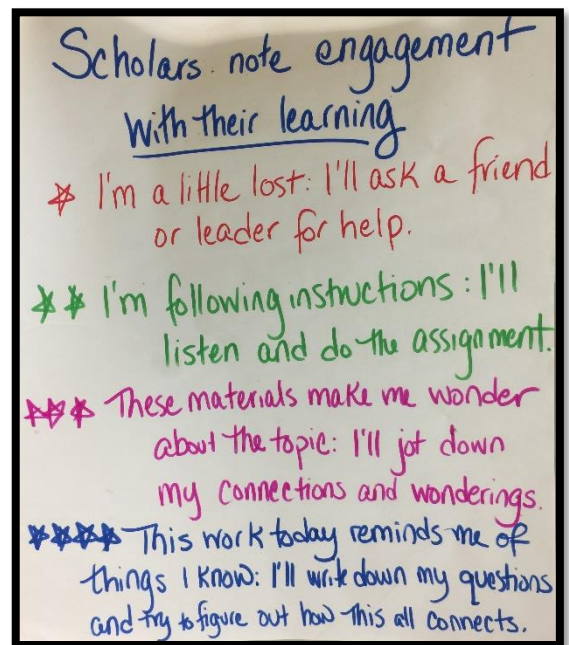 Scholars note engagement
with their learning
☆ I'm a little lost: I'll ask a friend
or leader for help.
☆☆ I'm following instructions: I'll
listen and do the assignment.
☆☆☆ These materials make me wonder
about the topic: I'll jot down
my connections and wonderings.
☆☆☆☆ This work today reminds me of
things I know: I'll write down my questions
and try to figure out how this all connects.